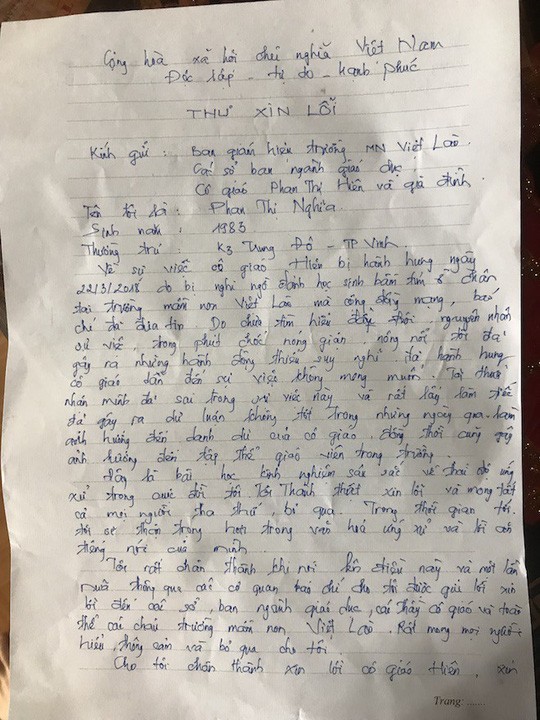 Cộng hòa xã hội chủ nghĩa Việt Nam
Độc lập - tự do - hạnh phúc
THƯ XIN LỖI
Kính gửi : Ban giám hiệu trường MN Việt Lào.
Các sở ban ngành giáo dục
Cô giáo Phan Thị Hiền và gia đình
Tên tôi là : Phan Thị Nghĩa.
Sinh năm : 1983
Thường trú K3 Trung Đô - TP Vinh
Về sự việc cô giáo Hiền bị hành hung ngày
22/3/2018 do bị nghi ngờ đánh học sinh bầm tím ở chân
tại trường mầm non Việt Lào mà cộng đồng mạng, báo
chí đã đưa tin. Do chưa tìm hiểu nguyên nhân
sự việc, trong phút chốc nóng giận, nông nổi tôi đã
gây ra những hành động thiếu suy nghĩ là hành hung
cô giáo dẫn đến sự việc không mong muốn. Tôi thấy
nhận mình đã sai trong sự việc này và rất lấy làm tiếc
đã gây ra dư luận không tốt trong những ngày qua làm
ảnh hưởng đến danh dự của cô giáo, đồng thời cũng gây
ảnh hưởng đến tập thể giáo viên trong trường.
Đây là bài học kinh nghiệm sâu sắc về thái độ ứng
xử trong cuộc đời tôi. Tôi thành thật xin lỗi và mong tất
cả mọi người tha thứ, bỏ qua. Trong thời gian tới,
tôi sẽ thận trọng hơn trong văn hoá ứng xử và lời ăn
tiếng nói của mình.
Tôi rất chân thành khi nói lên điều này và một lần
nữa thông qua các cơ quan báo chí cho tôi được gửi lời xin
lỗi đến các sở, ban ngành giáo dục, các thầy cô giáo và toàn
thể các cháu trường mầm non Việt Lào. Rất mong mọi người
hiểu, thông cảm và bỏ qua cho tôi.
Cho tôi chân thành xin lỗi cô giáo Hiền, xin
Trang: ......